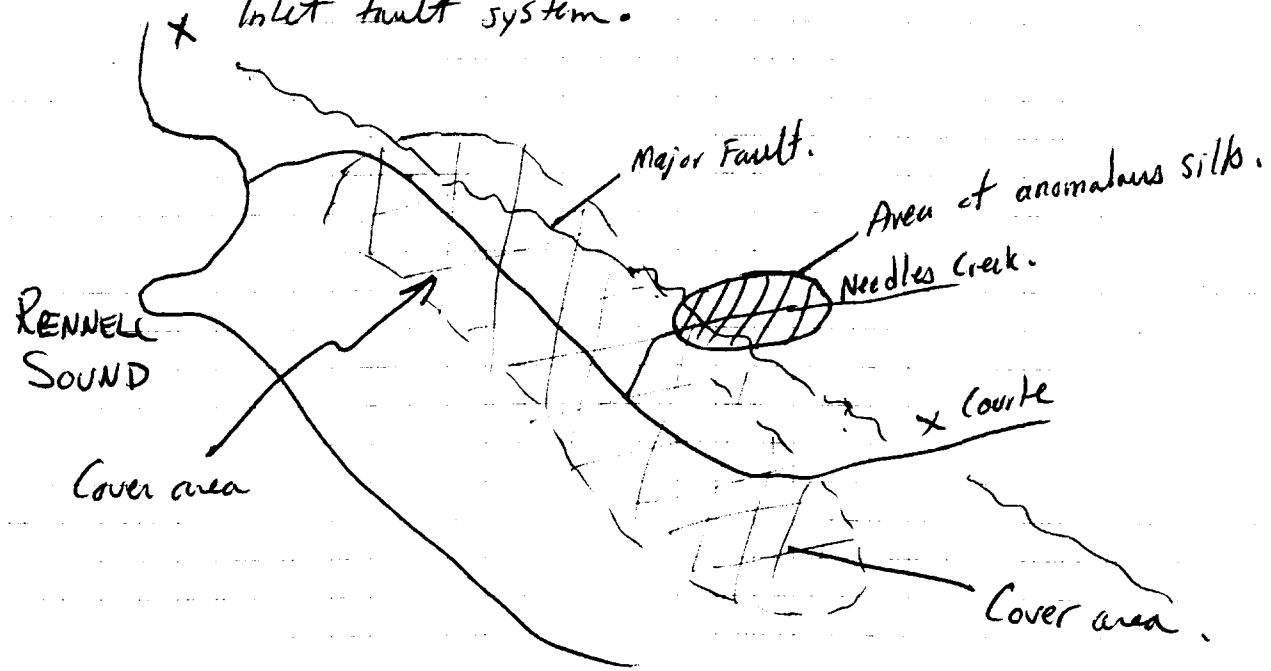 x Inlet fault system.
Major Fault.
Area of anomalous silts.
Needles Creek.
RENNELL
SOUND
x Courte
Cover area
Cover area.